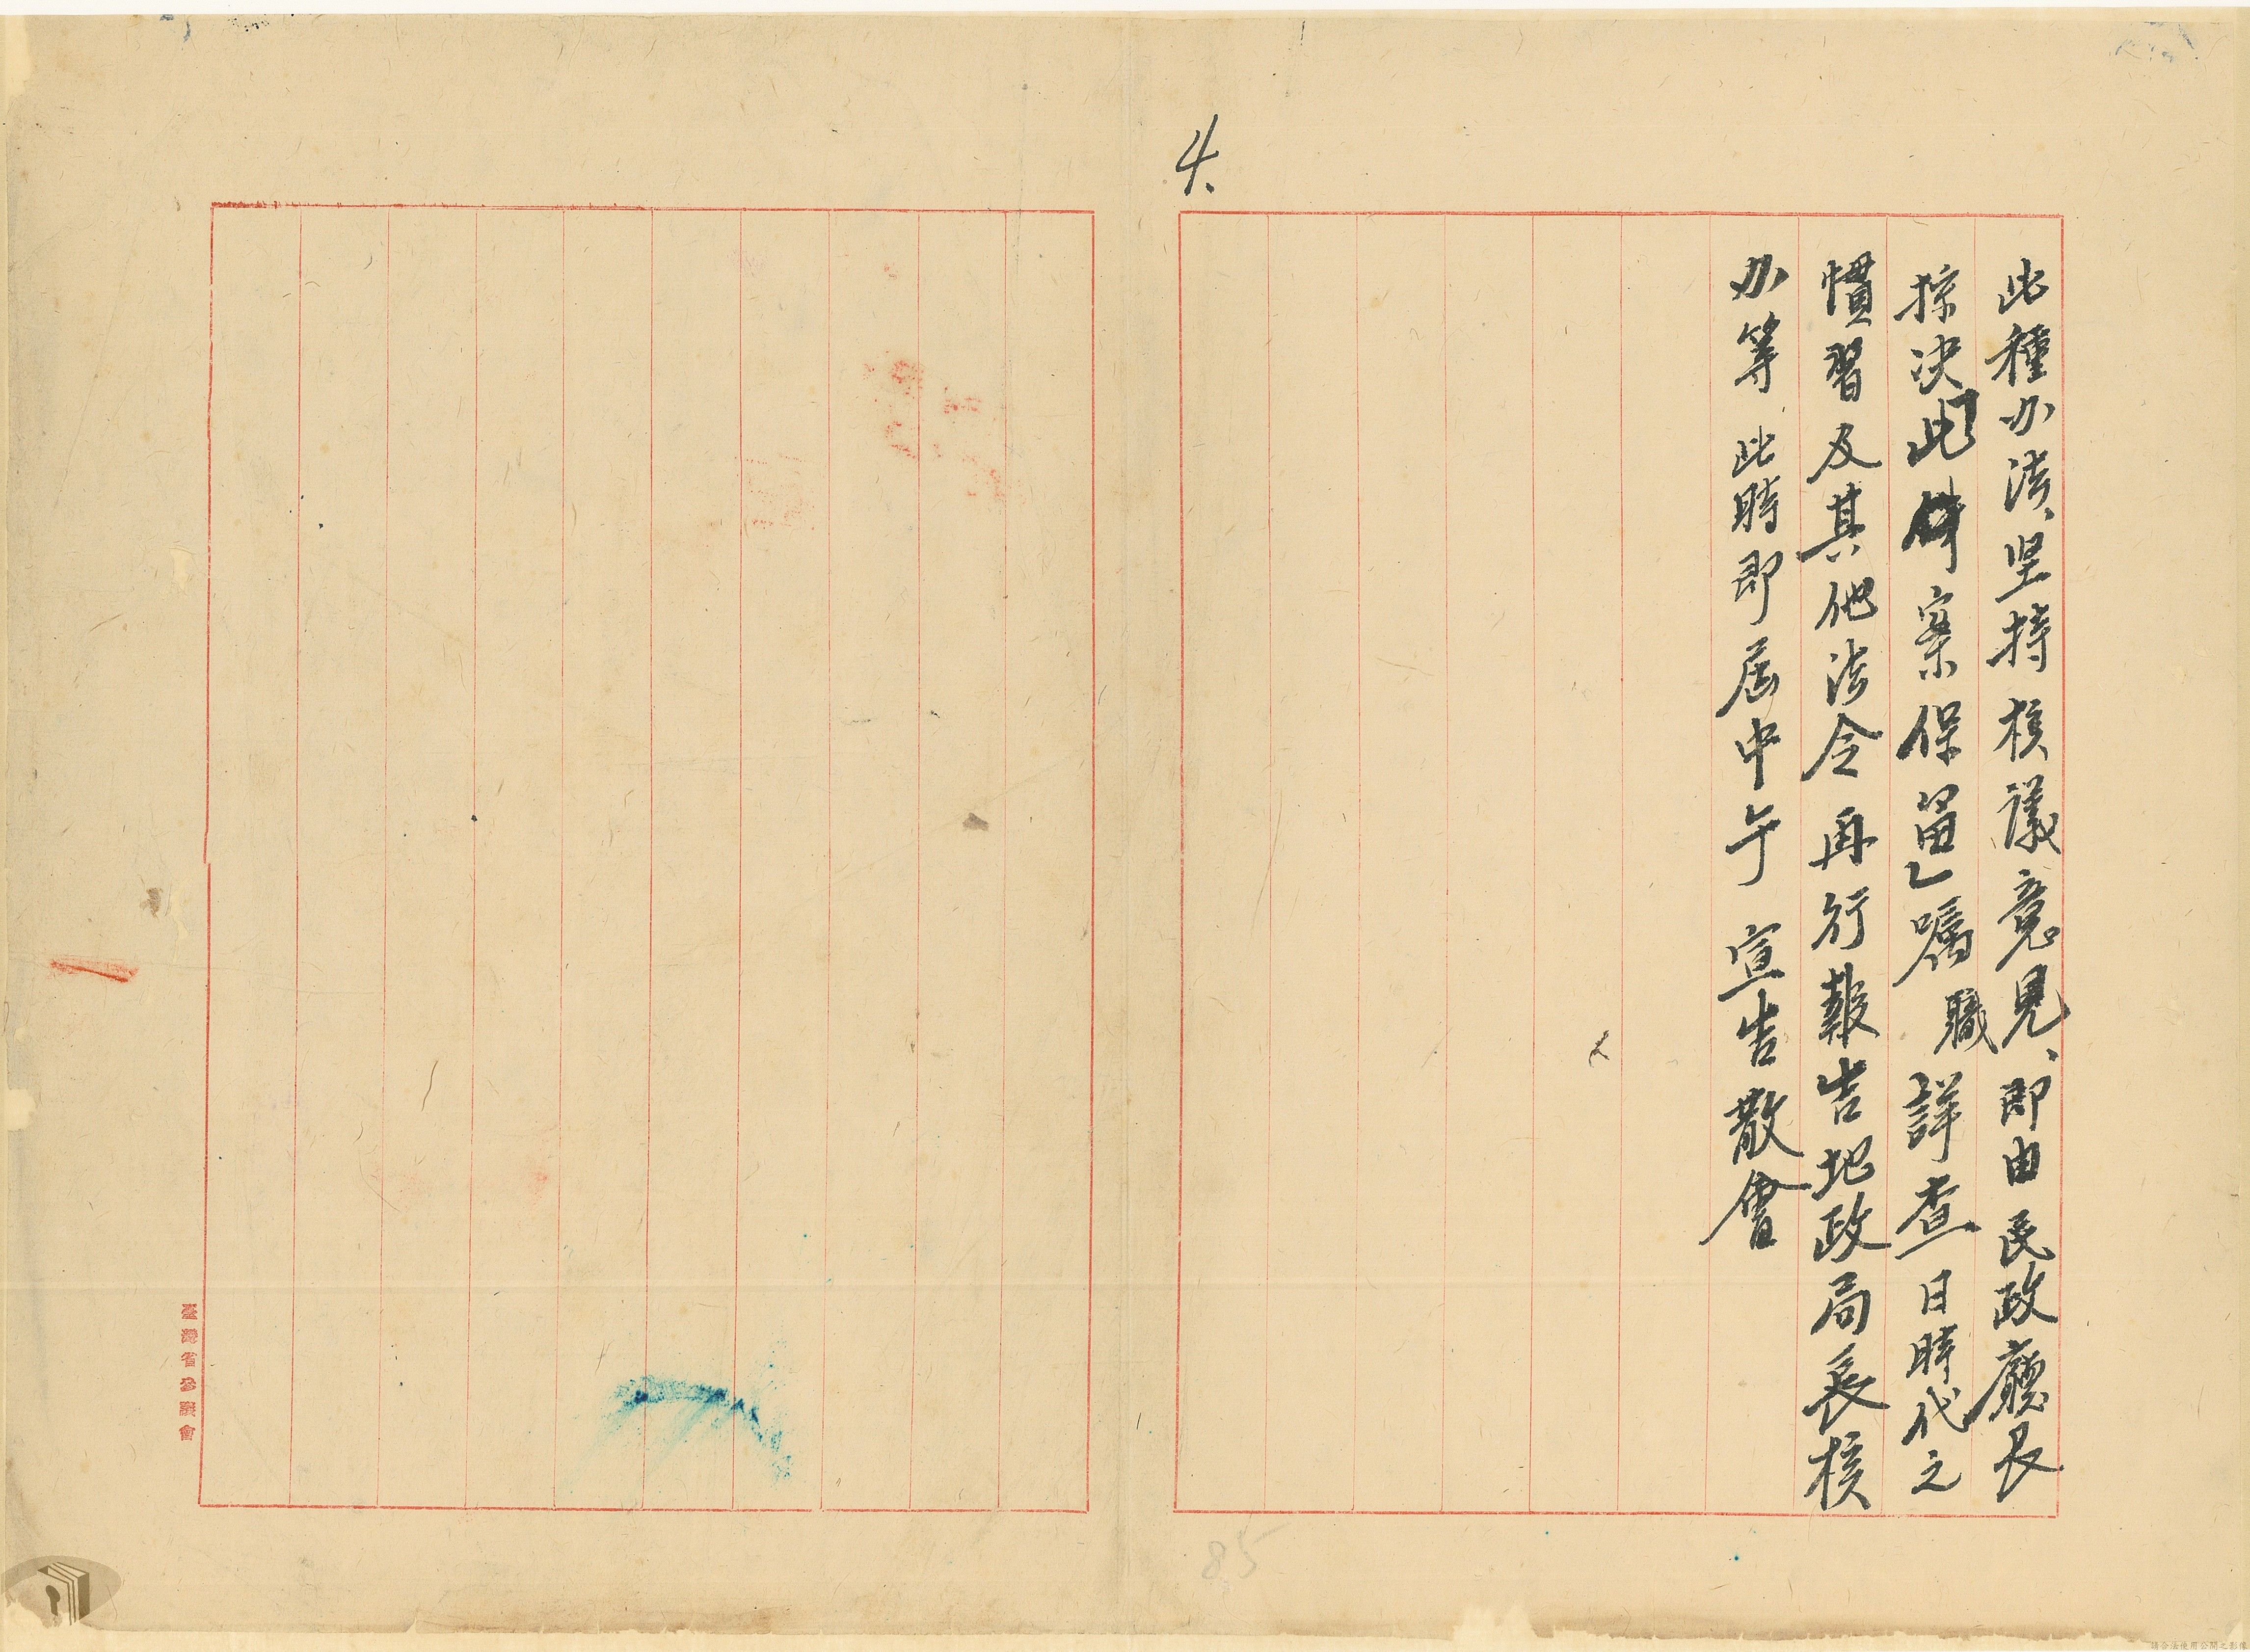 4.
此種办法、坚持核議意見、即由民政廳長
採決「此件案保留」嘱職詳查日時代之
慣習及其他法令再行報告地政局長核
办等 此時即屆中午 宣告散會
臺灣省參議會
85
請合法使用公開之影像